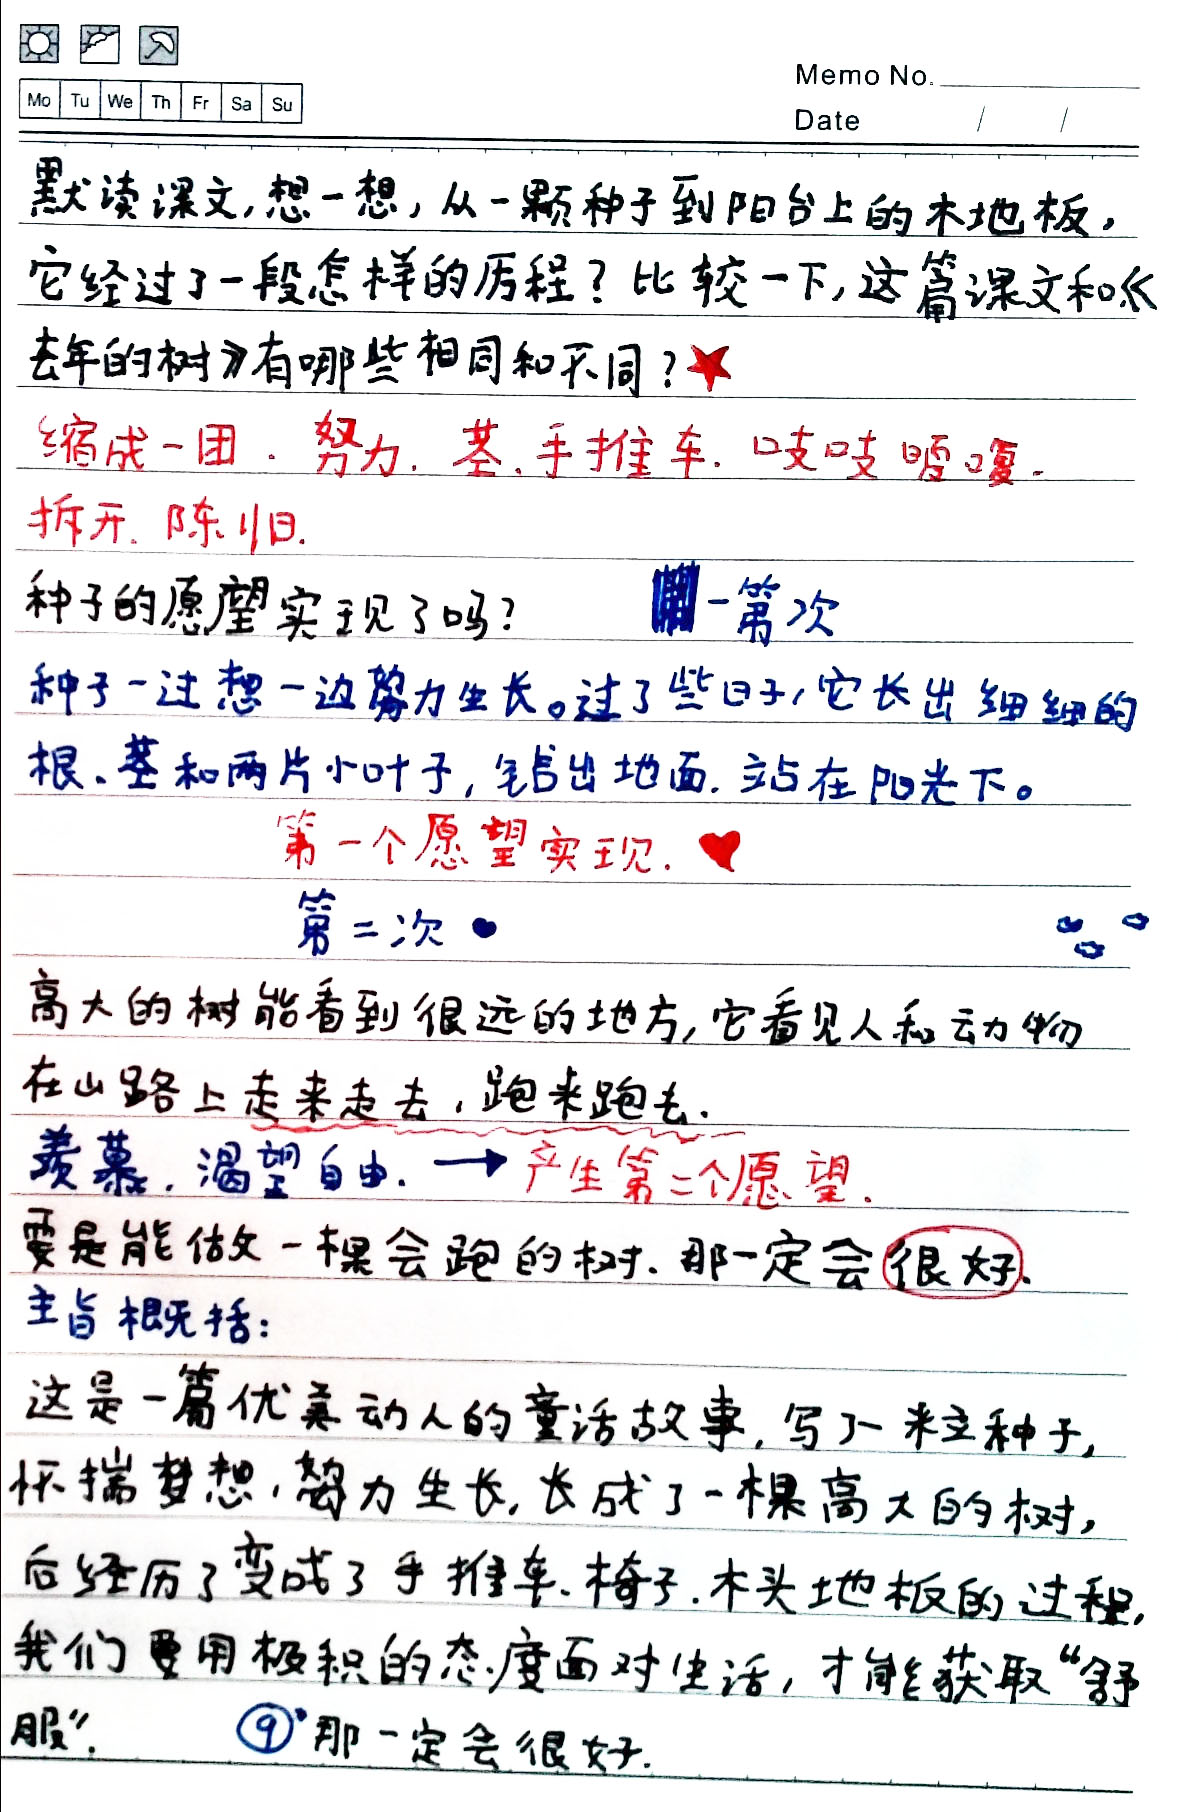 Mo Tu We Th Fr Sa Su
Memo No.
Date / /
默读课文,想一想,从一颗种子到阳台上的木地板,
它经过了一段怎样的历程?比较一下,这篇课文和《
去年的树》有哪些相同和不同?
缩成一团.努力.茎.手推车.吱吱嘎嘎.
拆开.陈旧.
种子的愿望实现了吗? 一第次
种子一过想一边努力生长。过了些日子,它长出细细的
根、茎和两片小叶子,钻出地面.站在阳光下。
第一个愿望实现.
第二次
高大的树能看到很远的地方,它看见人和动物
在山路上走来走去,跑来跑去.
羡慕.渴望自由.→产生第二个愿望.
要是能做一棵会跑的树.那一定会很好.
主旨概括:
这是一篇优美动人的童话故事,写了一粒种子,
怀揣梦想,努力生长,长成了一棵高大的树,
后经历了变成了手推车、椅子.木头地板的过程,
我们要用极积的态度面对生活,才能获取“舒
服”. ⑨那一定会很好.